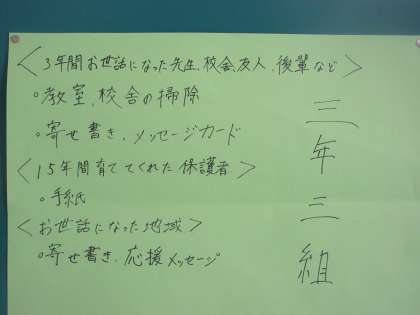 ＜3年間お世話になった先生、校舎、友人、後輩など＞
○教室、校舎の掃除
○寄せ書き、メッセージカード
＜15年間育ててくれた保護者＞
○手紙
＜お世話になった地域＞
○寄せ書き、応援メッセージ
三年三組